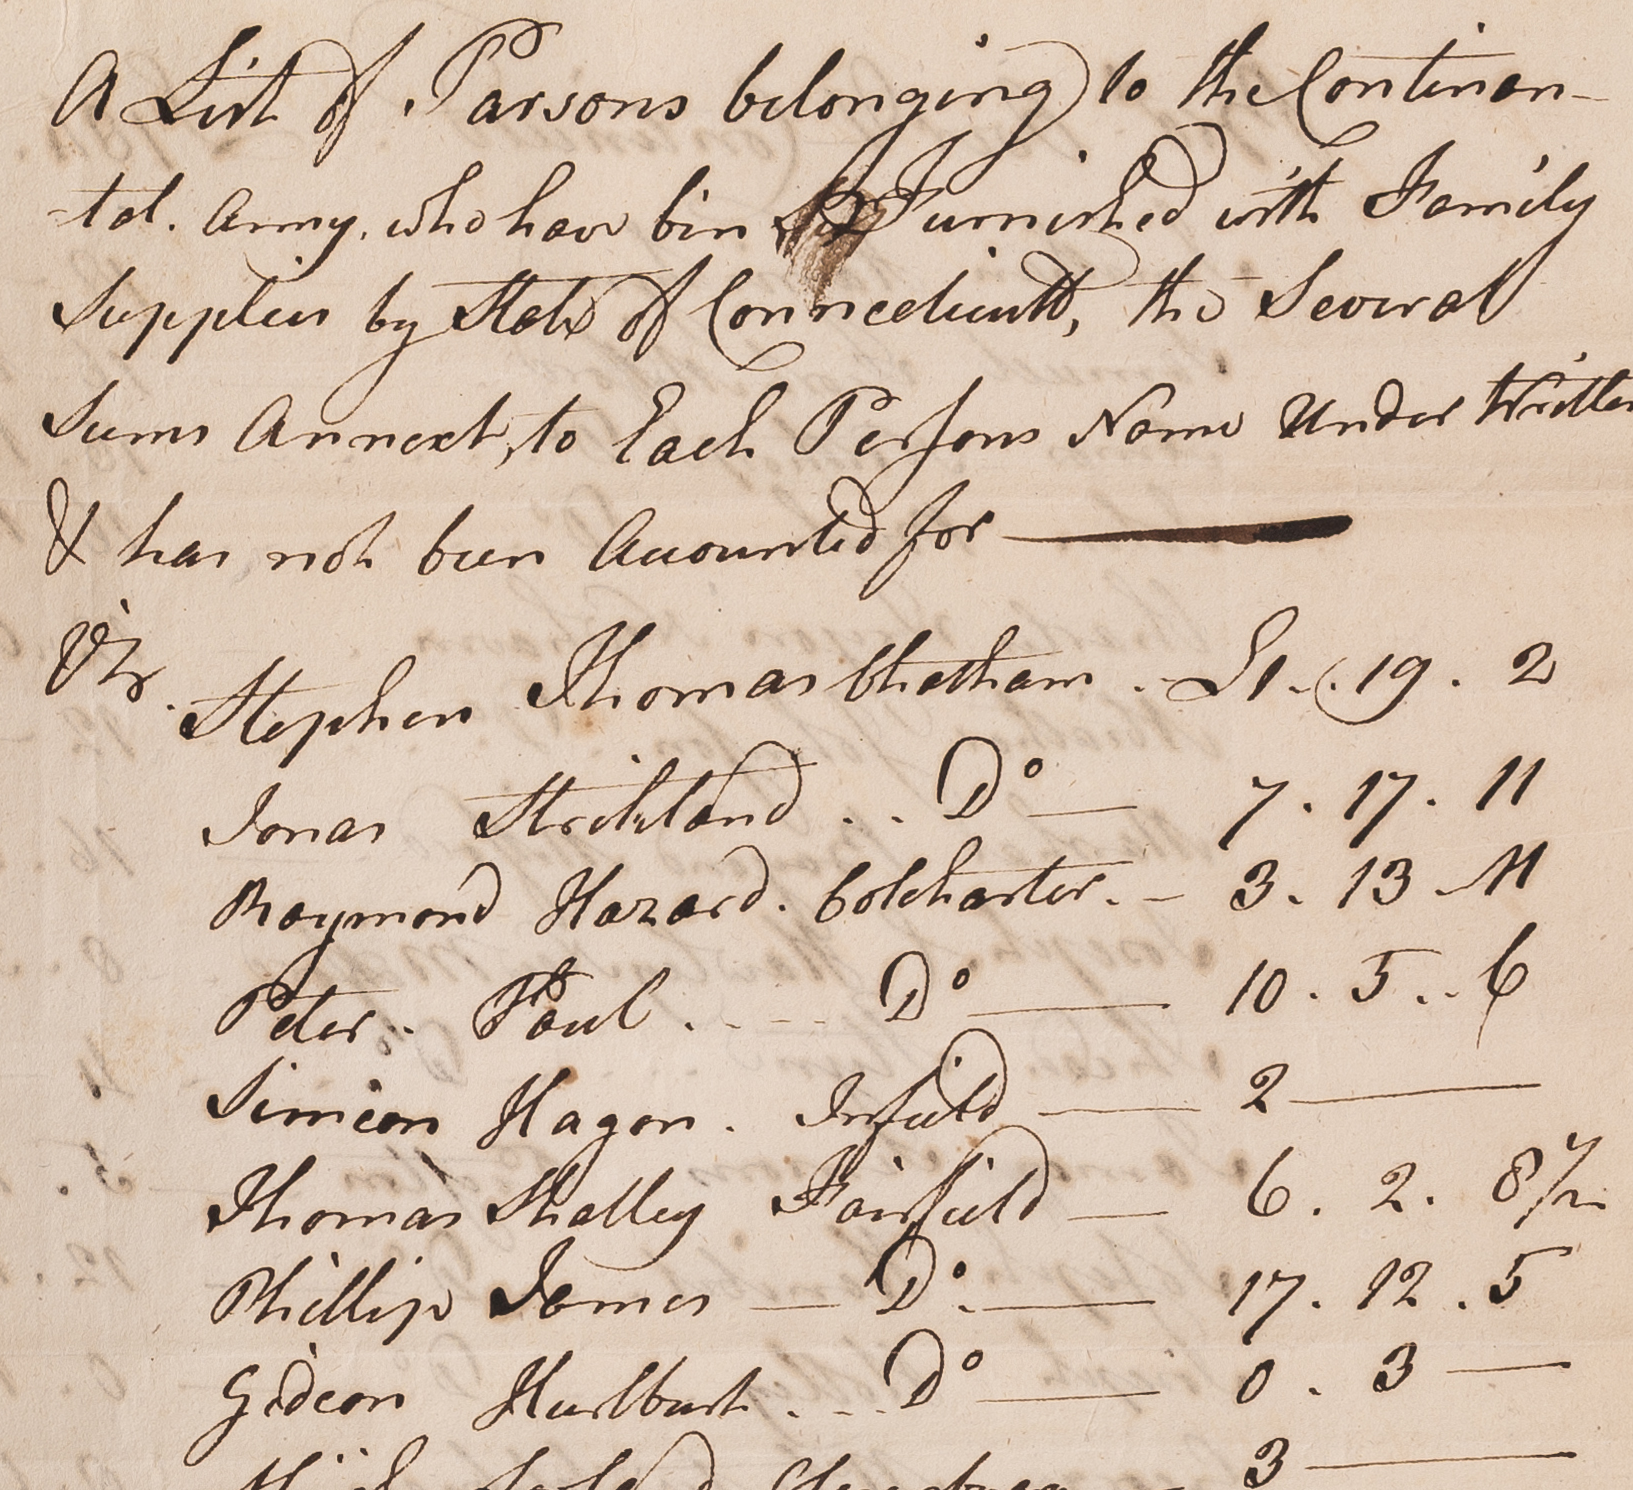 A List of Parsons belonging to the Continen-
-tal. Army, who have bin Furnished with Family
Supplies by State of Connecticutt, the Several
Sums Annext, to Each Persons Name Under Written
& has not been Acounted for —
Viz.
Stephen Thomas Chatham . - £1 . 19 . 2
Jonas Strickland . . Do — 7 . 17 . 11
Raymond Hazard . Colcharter . - 3 . 13 . 11
Peter . Paul . - - - Do — 10 . 5 . . 6
Simeon Hagon . Infield — 2 —
Thomas Shalley Fairfield — 6 . 2 . 8 1/2
Phillip James — Do . — 17 . 12 . 5
Gideon Hurlburt . . . Do — 0 . 3 —
3 —